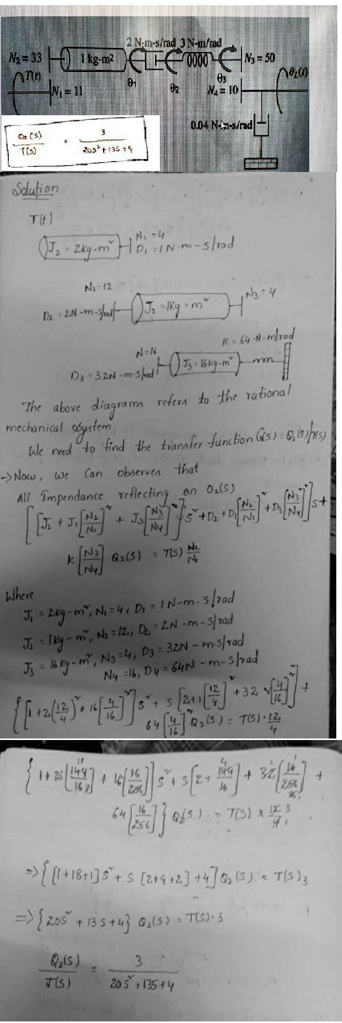 2 N-m-s/rad 3 N-m/rad
N₂ = 33
1 kg-m²
N₃ = 50
T(t)
θ₁
θ₂
θ₃
θL(t)
N₁ = 11
N₄ = 10
0.04 N-m-s/rad
T(s) = 3 / 20s²+13s+4
Solution
T(t)
J₂ = 2kg-m² N₁ = 4
D₁ = 1N-m-s/rad
N₂ = 12
D₂ = 2N-m-s/rad J₂ = 1kg-m² N₃ = 4
R = 64-N-m/rad
N = 16
J₃ = 16kg-m²
D₃ = 32N-m-s/rad
The above diagram refers to the rational
mechanical system.
We need to find the transfer function G(s) = Q₂(s)/T(s)
→ Now, we can observes that
All Impendance reflecting on O₂(s)
[[J₂ + J₁[N₂/N₁]² + J₃[N₃/N₄]²]s² + D₂ + D₁[N₂/N₁]² + D₃[N₃/N₄]²]s +
K[N₃/N₄] Q₂(s) = T(s) N₂/N₁
Where
J₁ = 2kg-m², N₁ = 4, D₁ = 1N-m-s/rad
J₂ = 1kg-m², N₂ = 12, D₂ = 2N-m-s/rad
J₃ = 16kg-m², N₃ = 4, D₃ = 32N-m-s/rad
N₄ = 16, D₄ = 64N-m-s/rad
{[1+2(12/4)² + 16[4/16]²]s² + s[2+1[12/4]² + 32[4/16]²] +
64[4/16]² Q₂(s) = T(s)·12/4
{1+2[144/16] + 16[16/256]]s² + s[2+144/16] + 32[16/256] +
64[16/256]} Q₂(s) = T(s) × 12/4 3
=> {[1+18+1]s² + s[2+9+2]+4} Q₂(s) = T(s)3
=> {20s² + 13s+4} Q₂(s) = T(s)·3
Q₂(s)/T(s) = 3 / 20s²+13s+4